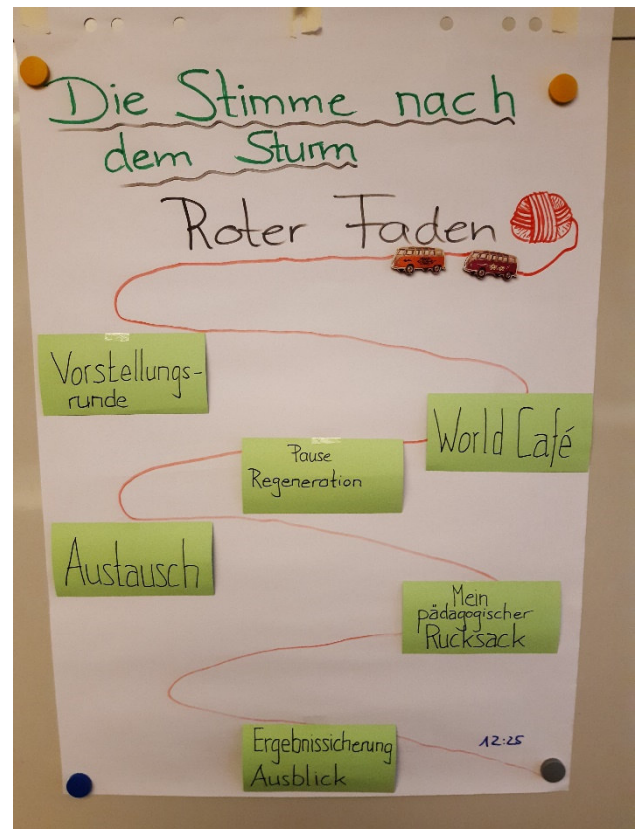 Die Stimme nach
dem Sturm
Roter Faden
Vorstellungs-
runde
World Café
Pause
Regeneration
Austausch
Mein
pädagogischer
Rucksack
Ergebnissicherung
Ausblick
12:25